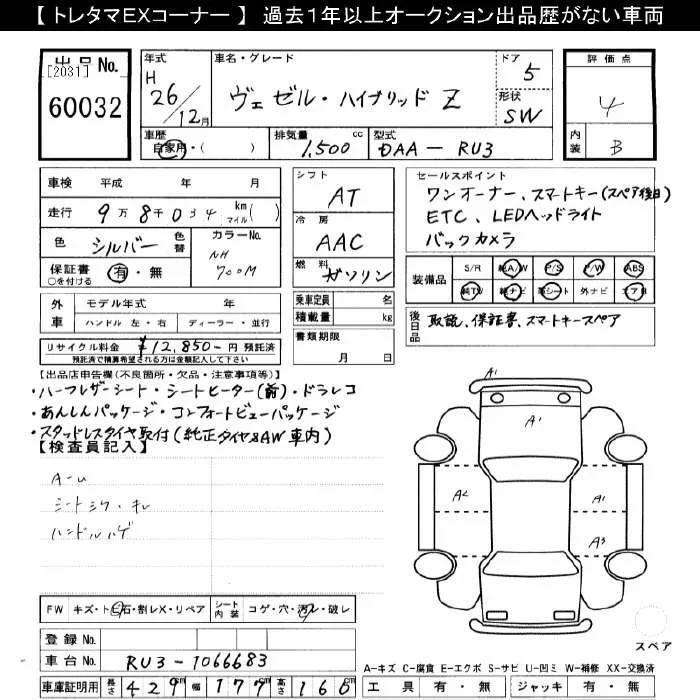 【 トレタマEXコーナー 】 過去1年以上オークション出品歴がない車両
出品 No.
[2031]
60032
年式 H 26/12月
車名・グレード ヴェゼル・ハイブリッド Z
ドア 5
形状 SW
評価点 4
内装 B
車歴 自家用・( )
排気量 1,500 cc
型式 DAA-RU3
車検 平成 年 月
走行 9万8千034 km マイル( )
色 シルバー 色替
カラーNo. NH 700M
保証書 有・無
○を付ける
外車 モデル年式 年
ハンドル 左・右 ディーラー・並行
リサイクル料金 ¥12,850-円 預託済
預託済で積算希望される方は金額記入して下さい
シフト AT
冷房 AAC
燃料 ガソリン
乗車定員 名
積載量 kg
書類期限
月 日
セールスポイント
ワンオーナー、スマートキー(スペア後日)
ETC、LEDヘッドライト
バックカメラ
装備品 S/R 純A/W P/S P/W ABS
純TV 純ナビ 革シート 外ナビ エアB
後日品 取説、保証書、スマートキースペア
【出品店申告欄(不良箇所・欠品・注意事項等)】
・ハーフレザーシート・シートヒーター(前)・ドラレコ
・あんしんパッケージ・コンフォートビューパッケージ
・スタッドレスタイヤ取付(純正タイヤ&AW車内)
【検査員記入】
A-U
シートシワ・キレ
ハンドルハゲ
A1
A1
A2
A1
A3
FW キズ・トビ石・割レX・リペア シート内装 コゲ・穴・汚レ・破レ
登録 No.
車台 No. RU3-1066683
車庫証明用 長さ 429cm 幅 177cm 高さ 160cm
スペア
A-キズ C-腐食 E-エクボ S-サビ U-凹ミ W-補修 XX-交換済
工具 有・無 ジャッキ 有・無